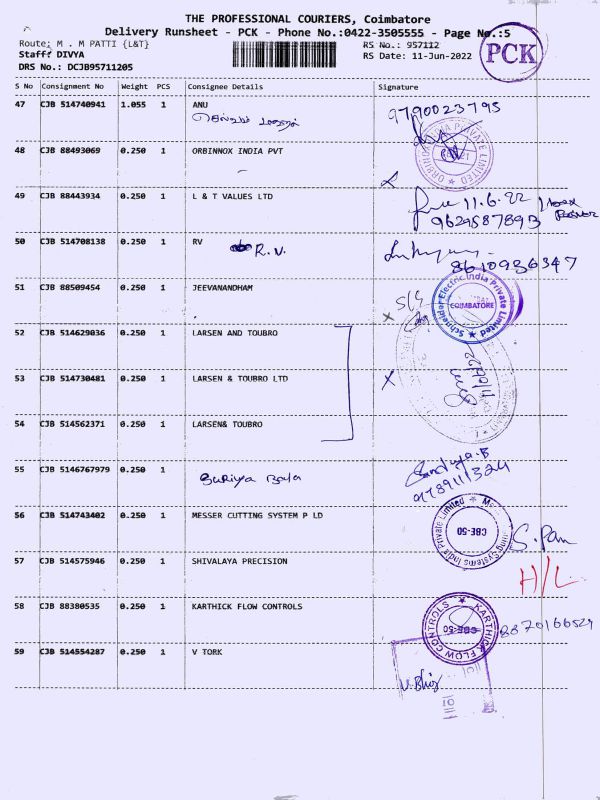 THE PROFESSIONAL COURIERS, Coimbatore
Delivery Runsheet - PCK - Phone No.:0422-3505555 - Page No.:5
PCK
Route: M . M PATTI {L&T}
Staff: DIVYA
DRS No.: DCJB95711205
RS No.: 957112
RS Date: 11-Jun-2022
S No Consignment No Weight PCS Consignee Details Signature
47 CJB 514740941 1.055 1 ANU
9790023795
48 CJB 88493069 0.250 1 ORBINNOX INDIA PVT
49 CJB 88443934 0.250 1 L & T VALUES LTD
11.6.22
9629587893
50 CJB 514708138 0.250 1 RV R.V.
8610936347
51 CJB 88509454 0.250 1 JEEVANANDHAM
Schneider Electric India Private Limited
COIMBATORE
52 CJB 514629036 0.250 1 LARSEN AND TOUBRO
53 CJB 514730481 0.250 1 LARSEN & TOUBRO LTD
54 CJB 514562371 0.250 1 LARSEN& TOUBRO
55 CJB 5146767979 0.250 1 Suriya Bala
Sandya.B
9789111324
56 CJB 514743402 0.250 1 MESSER CUTTING SYSTEM P LD
CBE-50
57 CJB 514575946 0.250 1 SHIVALAYA PRECISION
H/L
58 CJB 88380535 0.250 1 KARTHICK FLOW CONTROLS
KARTHICK FLOW CONTROLS
CBE-50
8870166529
59 CJB 514554287 0.250 1 V TORK